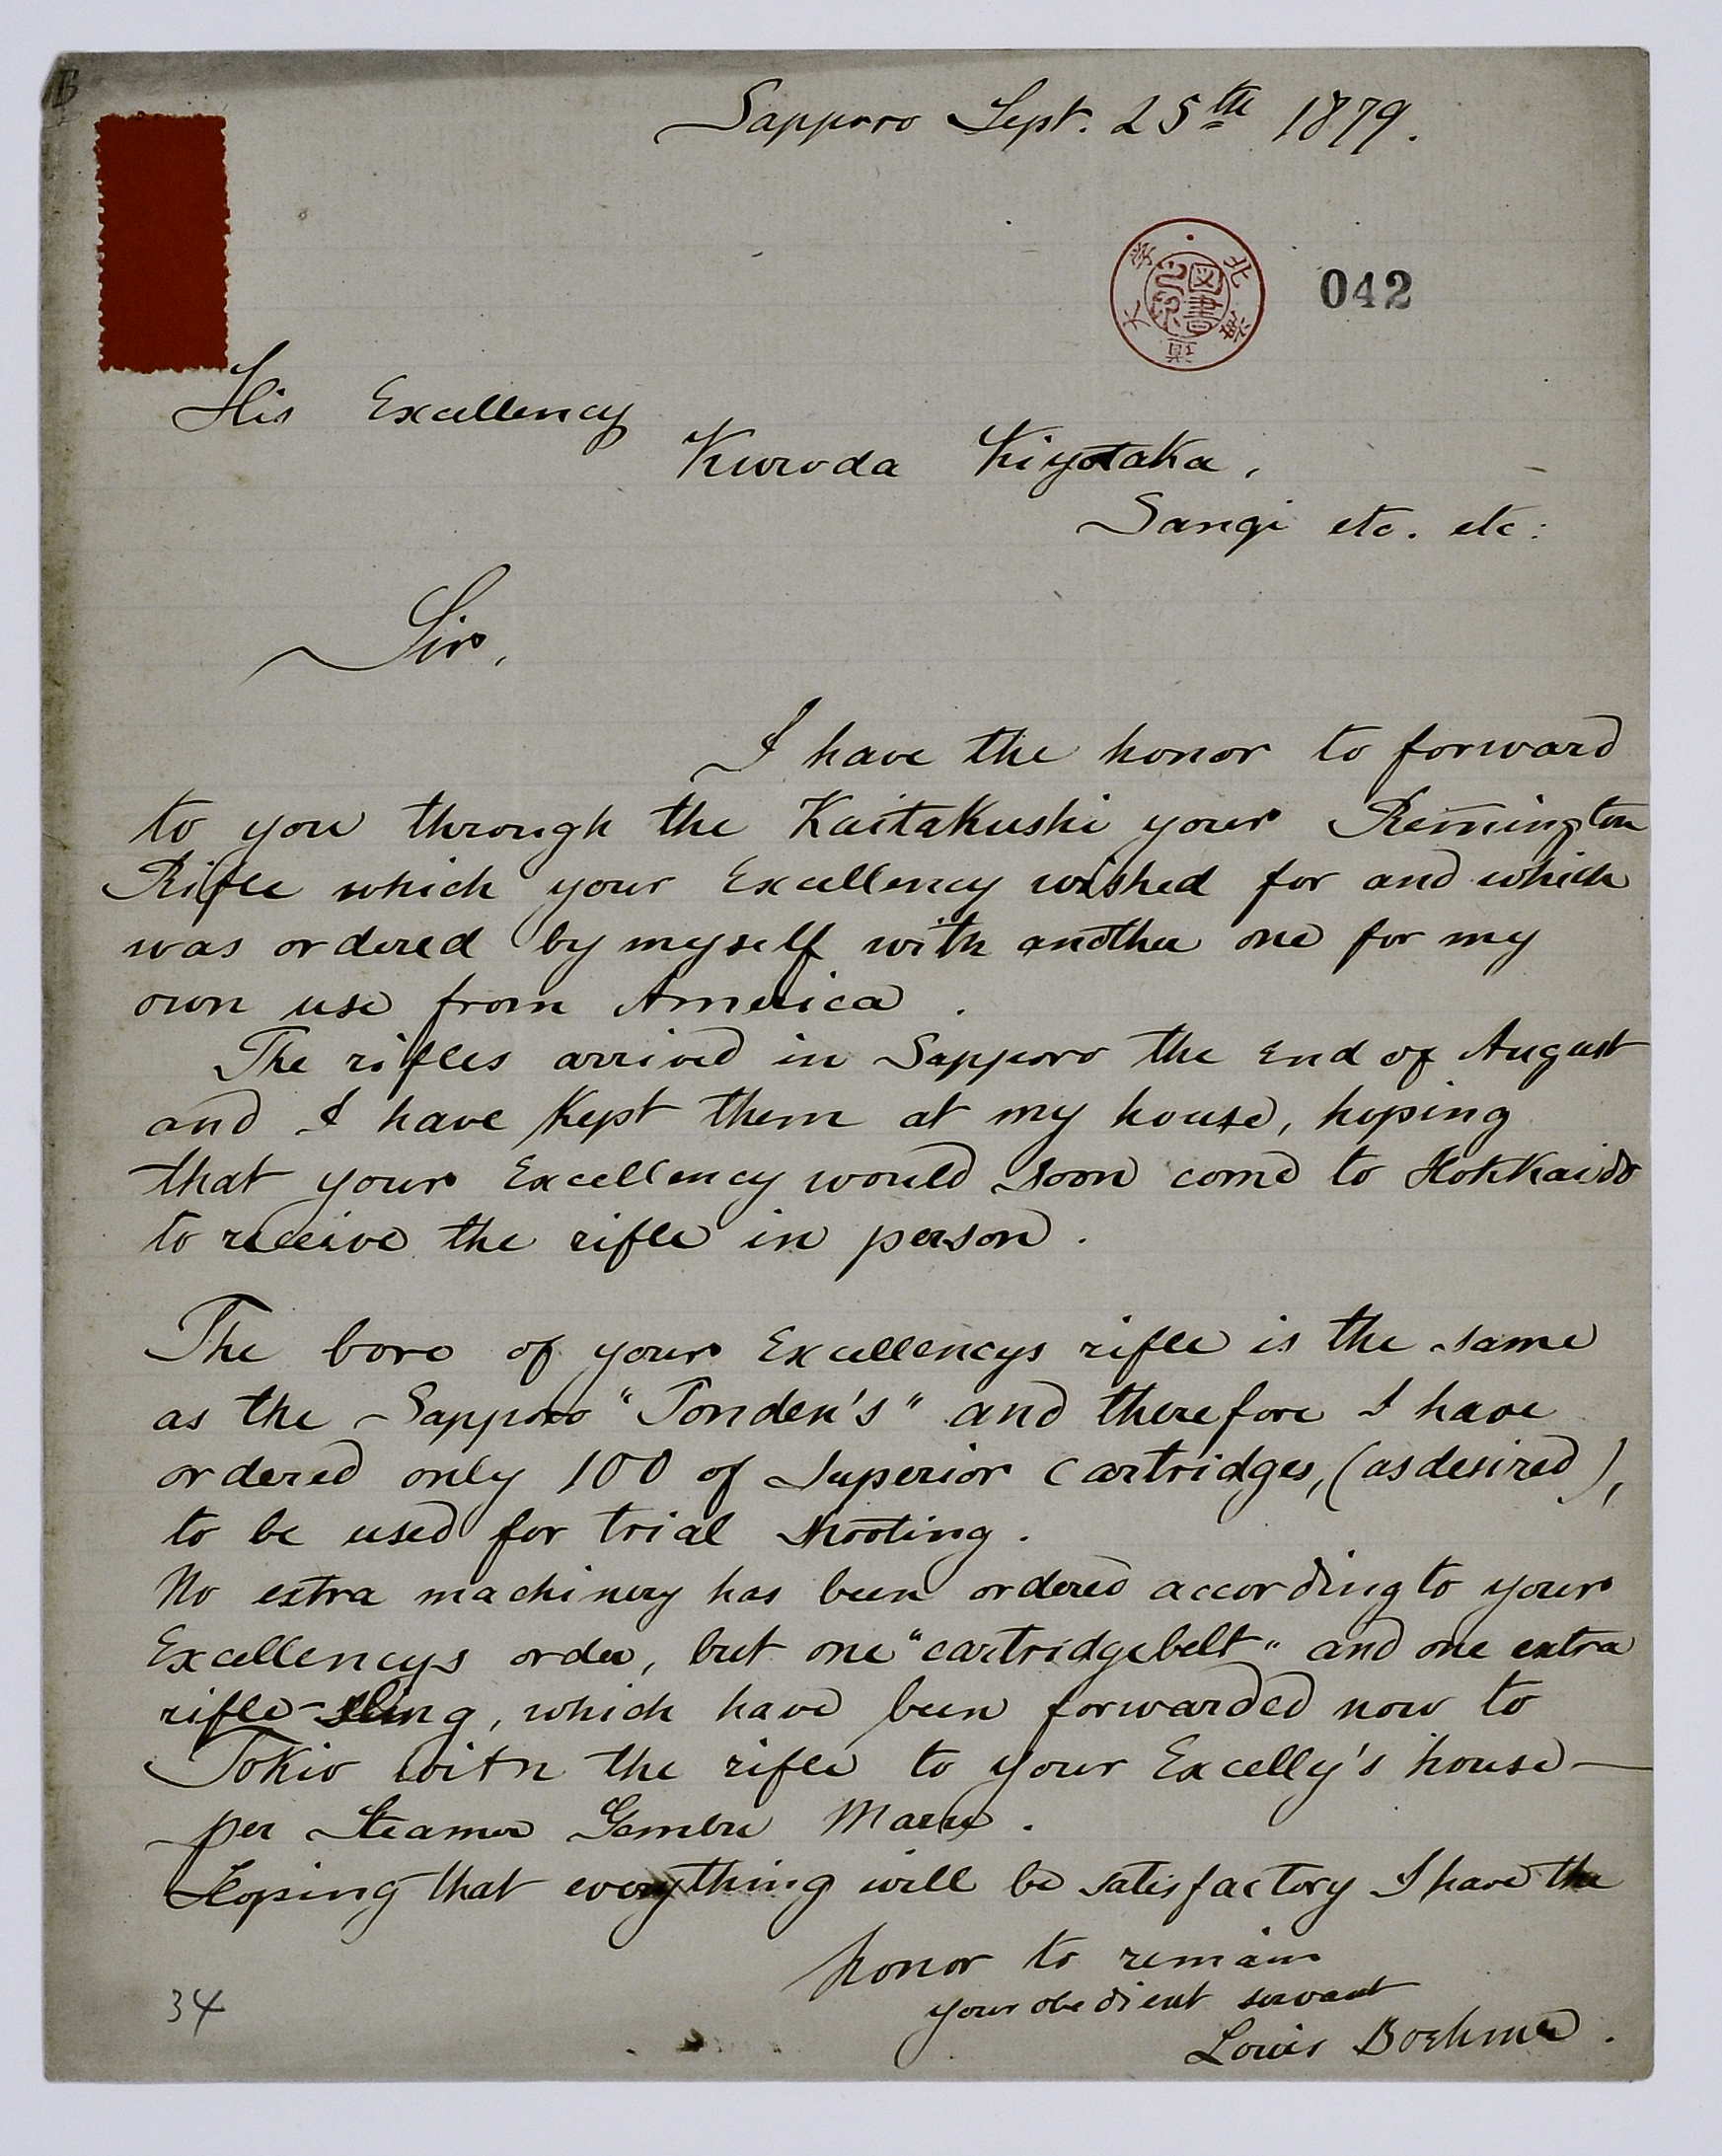 B
Sapporo Sept. 25th 1879.
北海道大学
図書之印
042
His Excellency
Kuroda Kiyotaka,
Sangi etc. etc:
Sir,
I have the honor to forward
to you through the Kaitakushi your Remington
Rifle which your Excellency wished for and which
was ordered by myself with another one for my
own use from America.
The rifles arrived in Sapporo the end of August
and I have kept them at my house, hoping
that your Excellency would soon come to Hokkaido
to receive the rifle in person.
The bore of your Excellencys rifle is the same
as the Sapporo "Tonden's" and therefore I have
ordered only 100 of Superior Cartridges, (as desired),
to be used for trial shooting.
No extra machinery has been ordered according to your
Excellencys order, but one "cartridgebelt" and one extra
rifle-sling, which have been forwarded now to
Tokio with the rifle to your Excelly's house—
per Steamer Gembu Maru.
Hoping that everything will be satisfactory I have the
honor to remain
your obedient servant
Louis Boehmer.
34